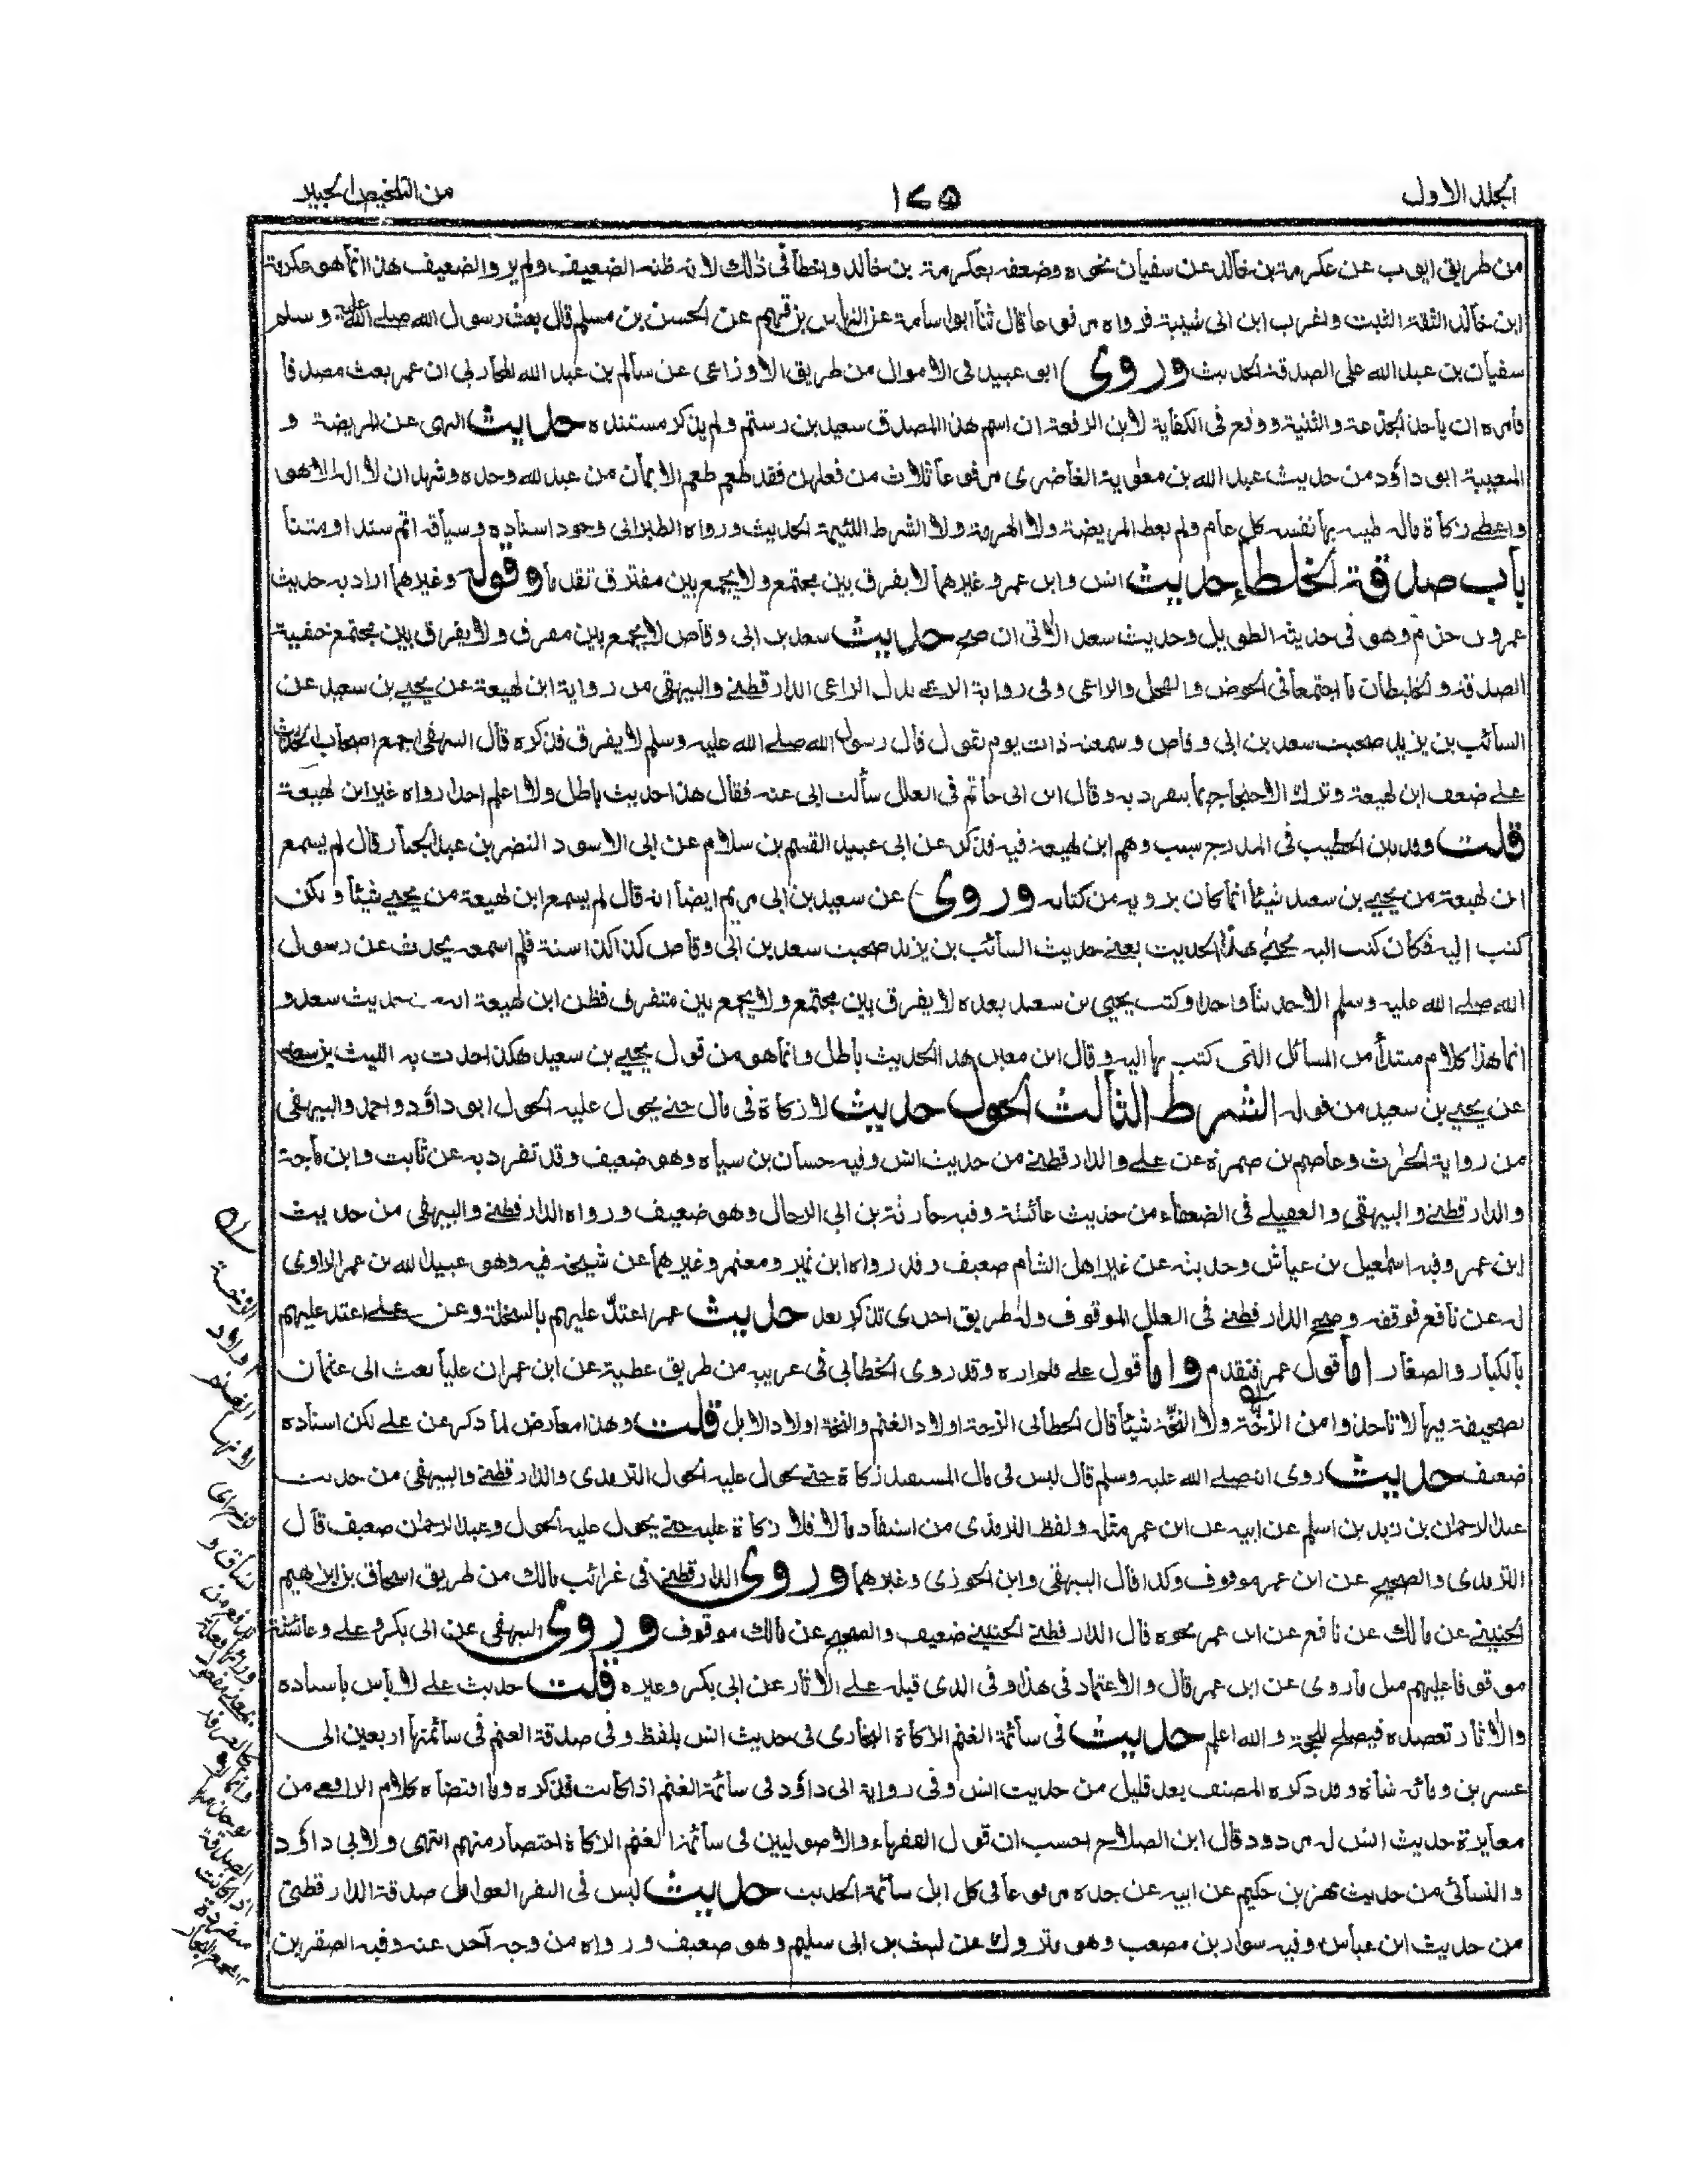 المجلد الاول
١٧٥
من التلخيص الحبير
من طريق ايوب عن عكرمة بن خالد عن سفيان نحوه وضعفه بعكرمة بن خالد واخطأ فى ذلك لانه ظنه الضعيف ولم يرو الضعيف هذا انما هو عكرمة
ابن خالد الثقة الثبت واغرب ابن ابى شيبة فرواه مرفوعا قال ثنا ابو اسامة عن النهاس بن قهم عن الحسن بن مسلم قال بعث رسول الله صلے الله عليه وسلم
سفيان بن عبد الله على الصدقة الحديث وروى) ابو عبيد فى الاموال من طريق الاوزاعى عن سالم بن عبد الله المحاربى ان عمر بعث مصدقا
فأمره ان يأخذ الجذعة والثنية ووقع فى الكفاية لابن الرفعة ان اسم هذا المصدق سعيد بن رستم ولم يذكر مستنده حديث النهى عن المريضة و
المعيبة ابو داؤد من حديث عبد الله بن معٰوية الغاضرى مرفوعا ثلاث من فعلهن فقد طعم طعم الايمان من عبد الله وحده وشهد ان لا اله الا هو
واعطے زكاة ماله طيبه بها نفسه كل عام ولم يعط المريضة ولا الهرمة ولا الشرط اللئيمة الحديث ورواه الطبرانى وجود اسناده وسياقه اتم سندا ومتنا
باب صدقة الخلطاء حديث انس وابن عمر وغيرهما لا يفرق بين مجتمع ولا يجمع بين مفترق تقدما وقوله وغيرهما اراد به حديث
عمرو بن حزم وهو فى حديثه الطويل وحديث سعد الآتى ان صح حديث سعد بن ابى وقاص لا يجمع بين مفرق ولا يفرق بين مجتمع خفية
الصدقة والخليطان ما اجتمعا فى الحوض والفحل والراعى وفى رواية الرعى بدل الراعى الدارقطنے والبيهقى من رواية ابن لهيعة عن يحيے بن سعيد عن
السائب بن يزيد صحبت سعد بن ابى وقاص وسمعته ذات يوم يقول قال رسول الله صلے الله عليه وسلم لا يفرق فذكره قال البيهقى اجمع اصحاب الحديث
علے ضعف ابن لهيعة وترك الاحتجاج بما ينفرد به وقال ابن ابى حاتم فى العلل سألت ابى عنه فقال هذا حديث باطل ولا اعلم احدا رواه غير ابن لهيعة
قلت وقد بين الخطيب فى المدرج سبب وهم ابن لهيعة فيه فذكر عن ابى عبيد القسم بن سلام عن ابى الاسود النضر بن عبد الجبار قال لم يسمع
ابن لهيعة من يحيے بن سعيد شيئا انما كان يرويه من كتابه وروى) عن سعيد بن ابى مريم ايضا انه قال لم يسمع ابن لهيعة من يحيے شيئا ولكن
كتب اليه فكان كتب اليه يحيے بهذا الحديث يعنے حديث السائب بن يزيد صحبت سعد بن ابى وقاص كذا كذا سنة فلم اسمعه يحدث عن رسول
الله صلے الله عليه وسلم الا حديثا واحدا وكتب يحيى بن سعيد بعده لا يفرق بين مجتمع ولا يجمع بين متفرق فظن ابن لهيعة انه حديث سعد و
انما هذا كلام مبتدأ من المسائل التى كتب بها اليه وقال ابن معين هذا الحديث باطل وانما هو من قول يحيے بن سعيد هكذا حدث به الليث بن سعد
عن يحيے بن سعيد من قوله الشرط الثالث الحول حديث لا زكاة فى مال حتے يحول عليه الحول ابو داؤد واحمد والبيهقى
من رواية الحٰرث وعاصم بن ضمرة عن علے والدارقطنے من حديث انس وفيه حسان بن سياه وهو ضعيف وقد تفرد به عن ثابت وابن ماجة
والدارقطنے والبيهقى والعقيلے فى الضعفاء من حديث عائشة وفيه حارثة بن ابى الرجال وهو ضعيف ورواه الدارقطنے والبيهقى من حديث
ابن عمر وفيه اسمٰعيل بن عياش وحديثه عن غير اهل الشام ضعيف وقد رواه ابن نمير ومعتمر وغيرهما عن شيخه فيه وهو عبيد الله بن عمر الراوى
له عن نافع فوقفه وصحح الدارقطنے فى العلل الموقوف وله طريق اخرى تذكر بعد حديث عمر اعتدّ عليهم بالسخلة وعن علے اعتد عليهم
بالكبار والصغار اما قول عمر فتقدم واما قول علے فلم اره وقد روى الخطابى فى غريبه من طريق عطية عن ابن عمر ان عليا بعث الى عثمان
بصحيفة فيها لا تأخذوا من الزخّة ولا النخّة شيئا قال الخطابى الزخة اولاد الغنم والنخة اولاد الابل قلت وهذا معارض لما ذكر عن علے لكن اسناده
ضعيف حديث روى انه صلے الله عليه وسلم قال ليس فى مال المستفيد زكاة حتے يحول عليه الحول الترمذى والدارقطنے والبيهقى من حديث
عبد الرحمان بن زيد بن اسلم عن ابيه عن ابن عمر مثله ولفظ الترمذى من استفاد مالا فلا زكاة عليه حتے يحول عليه الحول وعبد الرحمان ضعيف قال
الترمذى والصحيح عن ابن عمر موقوف وكذا قال البيهقى وابن الجوزى وغيرهما وروى الدارقطنے فى غرائب مالك من طريق اسحاق بن ابراهيم
الحنينے عن مالك عن نافع عن ابن عمر نحوه قال الدارقطنے الحنينے ضعيف والصحيح عن مالك موقوف وروى البيهقى عن ابى بكر وعلے وعائشة
موقوفا عليهم مثل ما روى عن ابن عمر قال والاعتماد فى هذا وفى الذى قبله علے الآثار عن ابى بكر وغيره قلت حديث علے لا بأس باسناده
والآثار تعضده فيصلح للحجة والله اعلم حديث فى سائمة الغنم الزكاة البخارى فى حديث انس بلفظ وفى صدقة الغنم فى سائمتها اربعين الى
عشرين ومائة شاة وقد ذكره المصنف بعد قليل من حديث انس وفى رواية ابى داؤد فى سائمة الغنم اذا كانت فذكره وما اقتضاه كلام الرافعے من
مغايرة حديث انس له مردود قال ابن الصلاح احسب ان قول الفقهاء والاصوليين فى سائمة الغنم الزكاة اختصار منهم انتهى ولابى داؤد
والنسائى من حديث بهز بن حكيم عن ابيه عن جده مرفوعا فى كل ابل سائمة الحديث حديث ليس فى البقر العوامل صدقة الدارقطنى
من حديث ابن عباس وفيه سوار بن مصعب وهو متروك عن ليث بن ابى سليم وهو ضعيف ورواه من وجه آخر عنه وفيه الصقر بن
الزخة
اولاد
الغنم
لانها
تزخ اى
تساق و
تدفع من
الصدقة
اذا كانت
منفردة